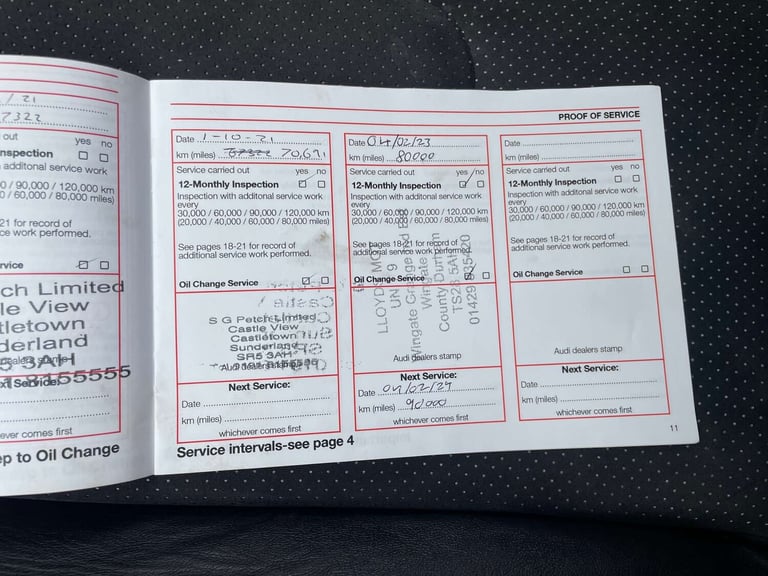 / 21
7322
out
yes no
nspection
additonal service work
0 / 90,000 / 120,000 km
0 / 60,000 / 80,000 miles)
21 for record of
ce work performed.
rvice
ch Limited
le View
tletown
derland
3AH
155555
xt Service:
ever comes first
ep to Oil Change
PROOF OF SERVICE
Date 1-10-21
km (miles) 67322 70,691
Service carried out yes no
12-Monthly Inspection
Inspection with additonal service work
every
30,000 / 60,000 / 90,000 / 120,000 km
(20,000 / 40,000 / 60,000 / 80,000 miles)
See pages 18-21 for record of
additional service work performed.
Oil Change Service
S G Petch Limited
Castle View
Castletown
Sunderland
SR5 3AH
Audi dealers stamp
Next Service:
Date
km (miles)
whichever comes first
Service intervals-see page 4
Date 04/02/23
km (miles) 80000
Service carried out yes no
12-Monthly Inspection
Inspection with additonal service work
every
30,000 / 60,000 / 90,000 / 120,000 km
(20,000 / 40,000 / 60,000 / 80,000 miles)
See pages 18-21 for record of
additional service work performed.
Oil Change Service
LLOYD
UNIT 9
Wingate Grange Ind Est
Wingate
County Durham
TS28 5AH
01429 835420
Audi dealers stamp
Next Service:
Date 04/02/24
km (miles) 90000
whichever comes first
Date
km (miles)
Service carried out yes no
12-Monthly Inspection
Inspection with additonal service work
every
30,000 / 60,000 / 90,000 / 120,000 km
(20,000 / 40,000 / 60,000 / 80,000 miles)
See pages 18-21 for record of
additional service work performed.
Oil Change Service
Audi dealers stamp
Next Service:
Date
km (miles)
whichever comes first
11